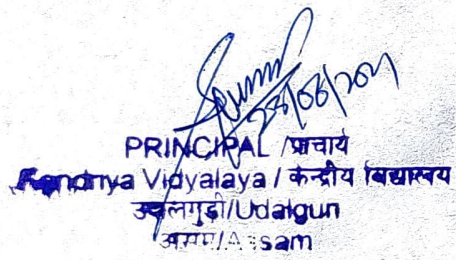 PRINCIPAL /प्राचार्य
Kendriya Vidyalaya / केन्द्रीय विद्यालय
उदलगुड़ी/Udalguri
असम/Assam